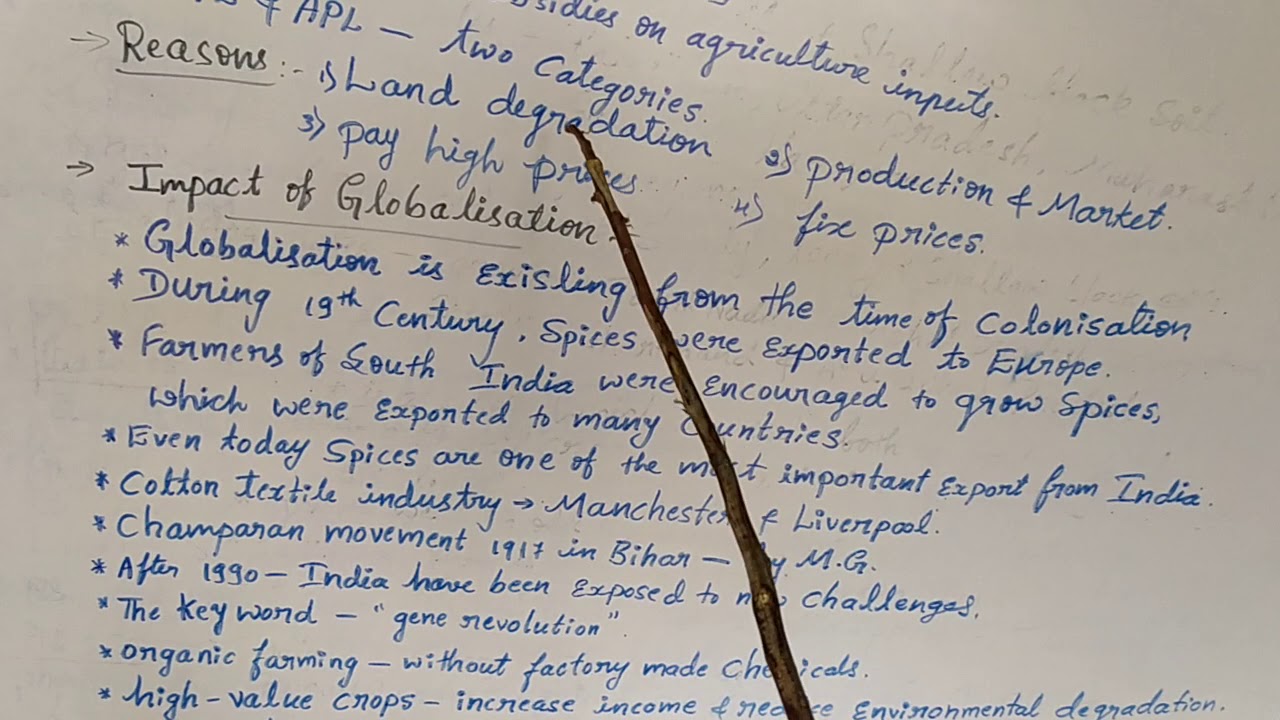 & APL — two Categories. subsidies on agriculture inputs.
→ Reasons :- 1) Land degradation 2) production & Market.
3) pay high prices. 4) fix prices.
→ Impact of Globalisation.
* Globalisation is Existing from the time of Colonisation
* During 19th Century, Spices were Exported to Europe.
* Farmers of South India were Encouraged to grow Spices,
which were Exported to many Countries.
* Even today Spices are one of the most important Export from India.
* Cotton textile industry → Manchester & Liverpool.
* Champaran movement 1917 in Bihar — by M.G.
* After 1990 — India have been Exposed to new challenges.
* The Key word — "gene revolution".
* organic farming — without factory made chemicals.
* high-value crops — increase income & reduce Environmental degradation.